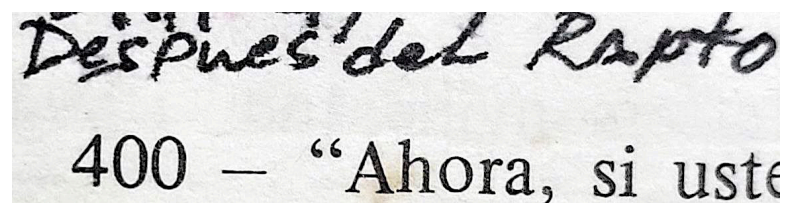 Despues del Rapto
400 – “Ahora, si uste